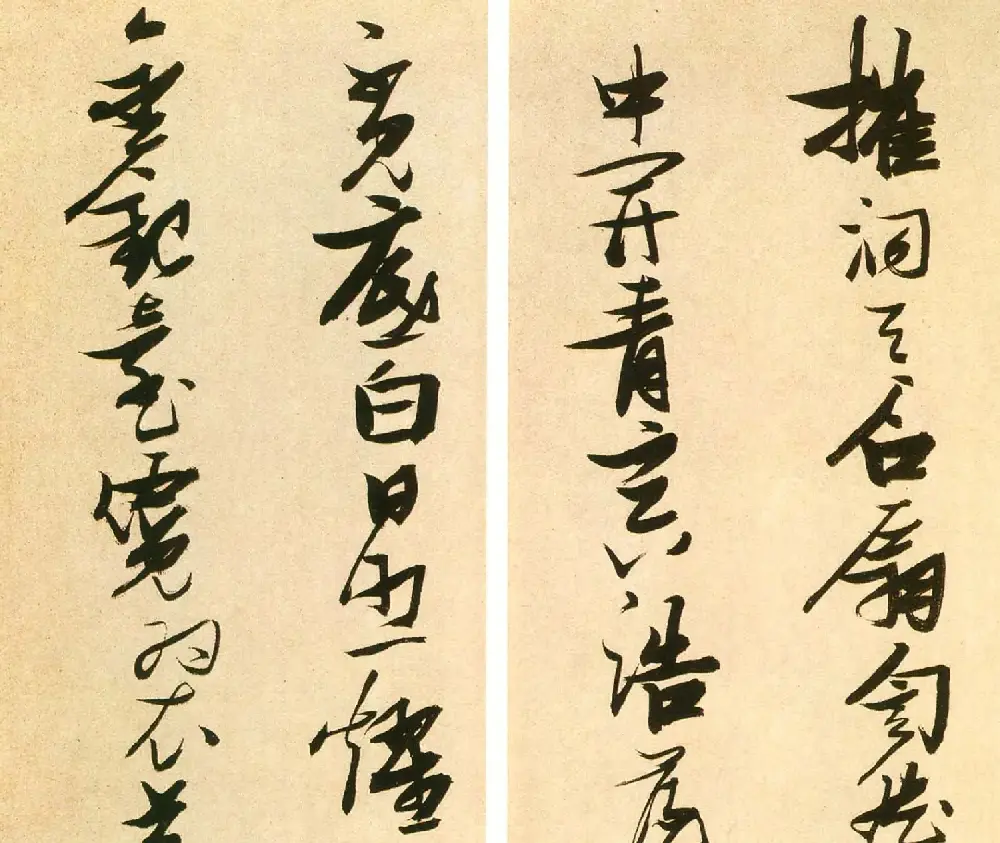 摧洞天石扇訇然
中開青冥浩蕩
見底白日照燿
金銀臺霓為衣